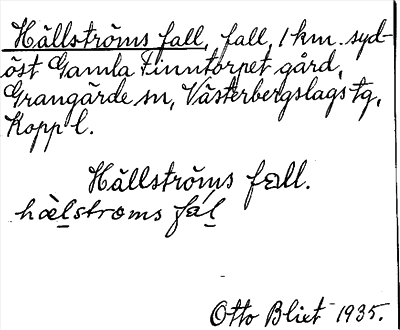 Hällströms fall, fall, 1 km. syd-
öst Gamla Finntorpet gård,
Grangärde sn, Västerbergslags tg,
Kopp l.
Hällströms fall.
hælstroms fal
Otto Blixt 1935.